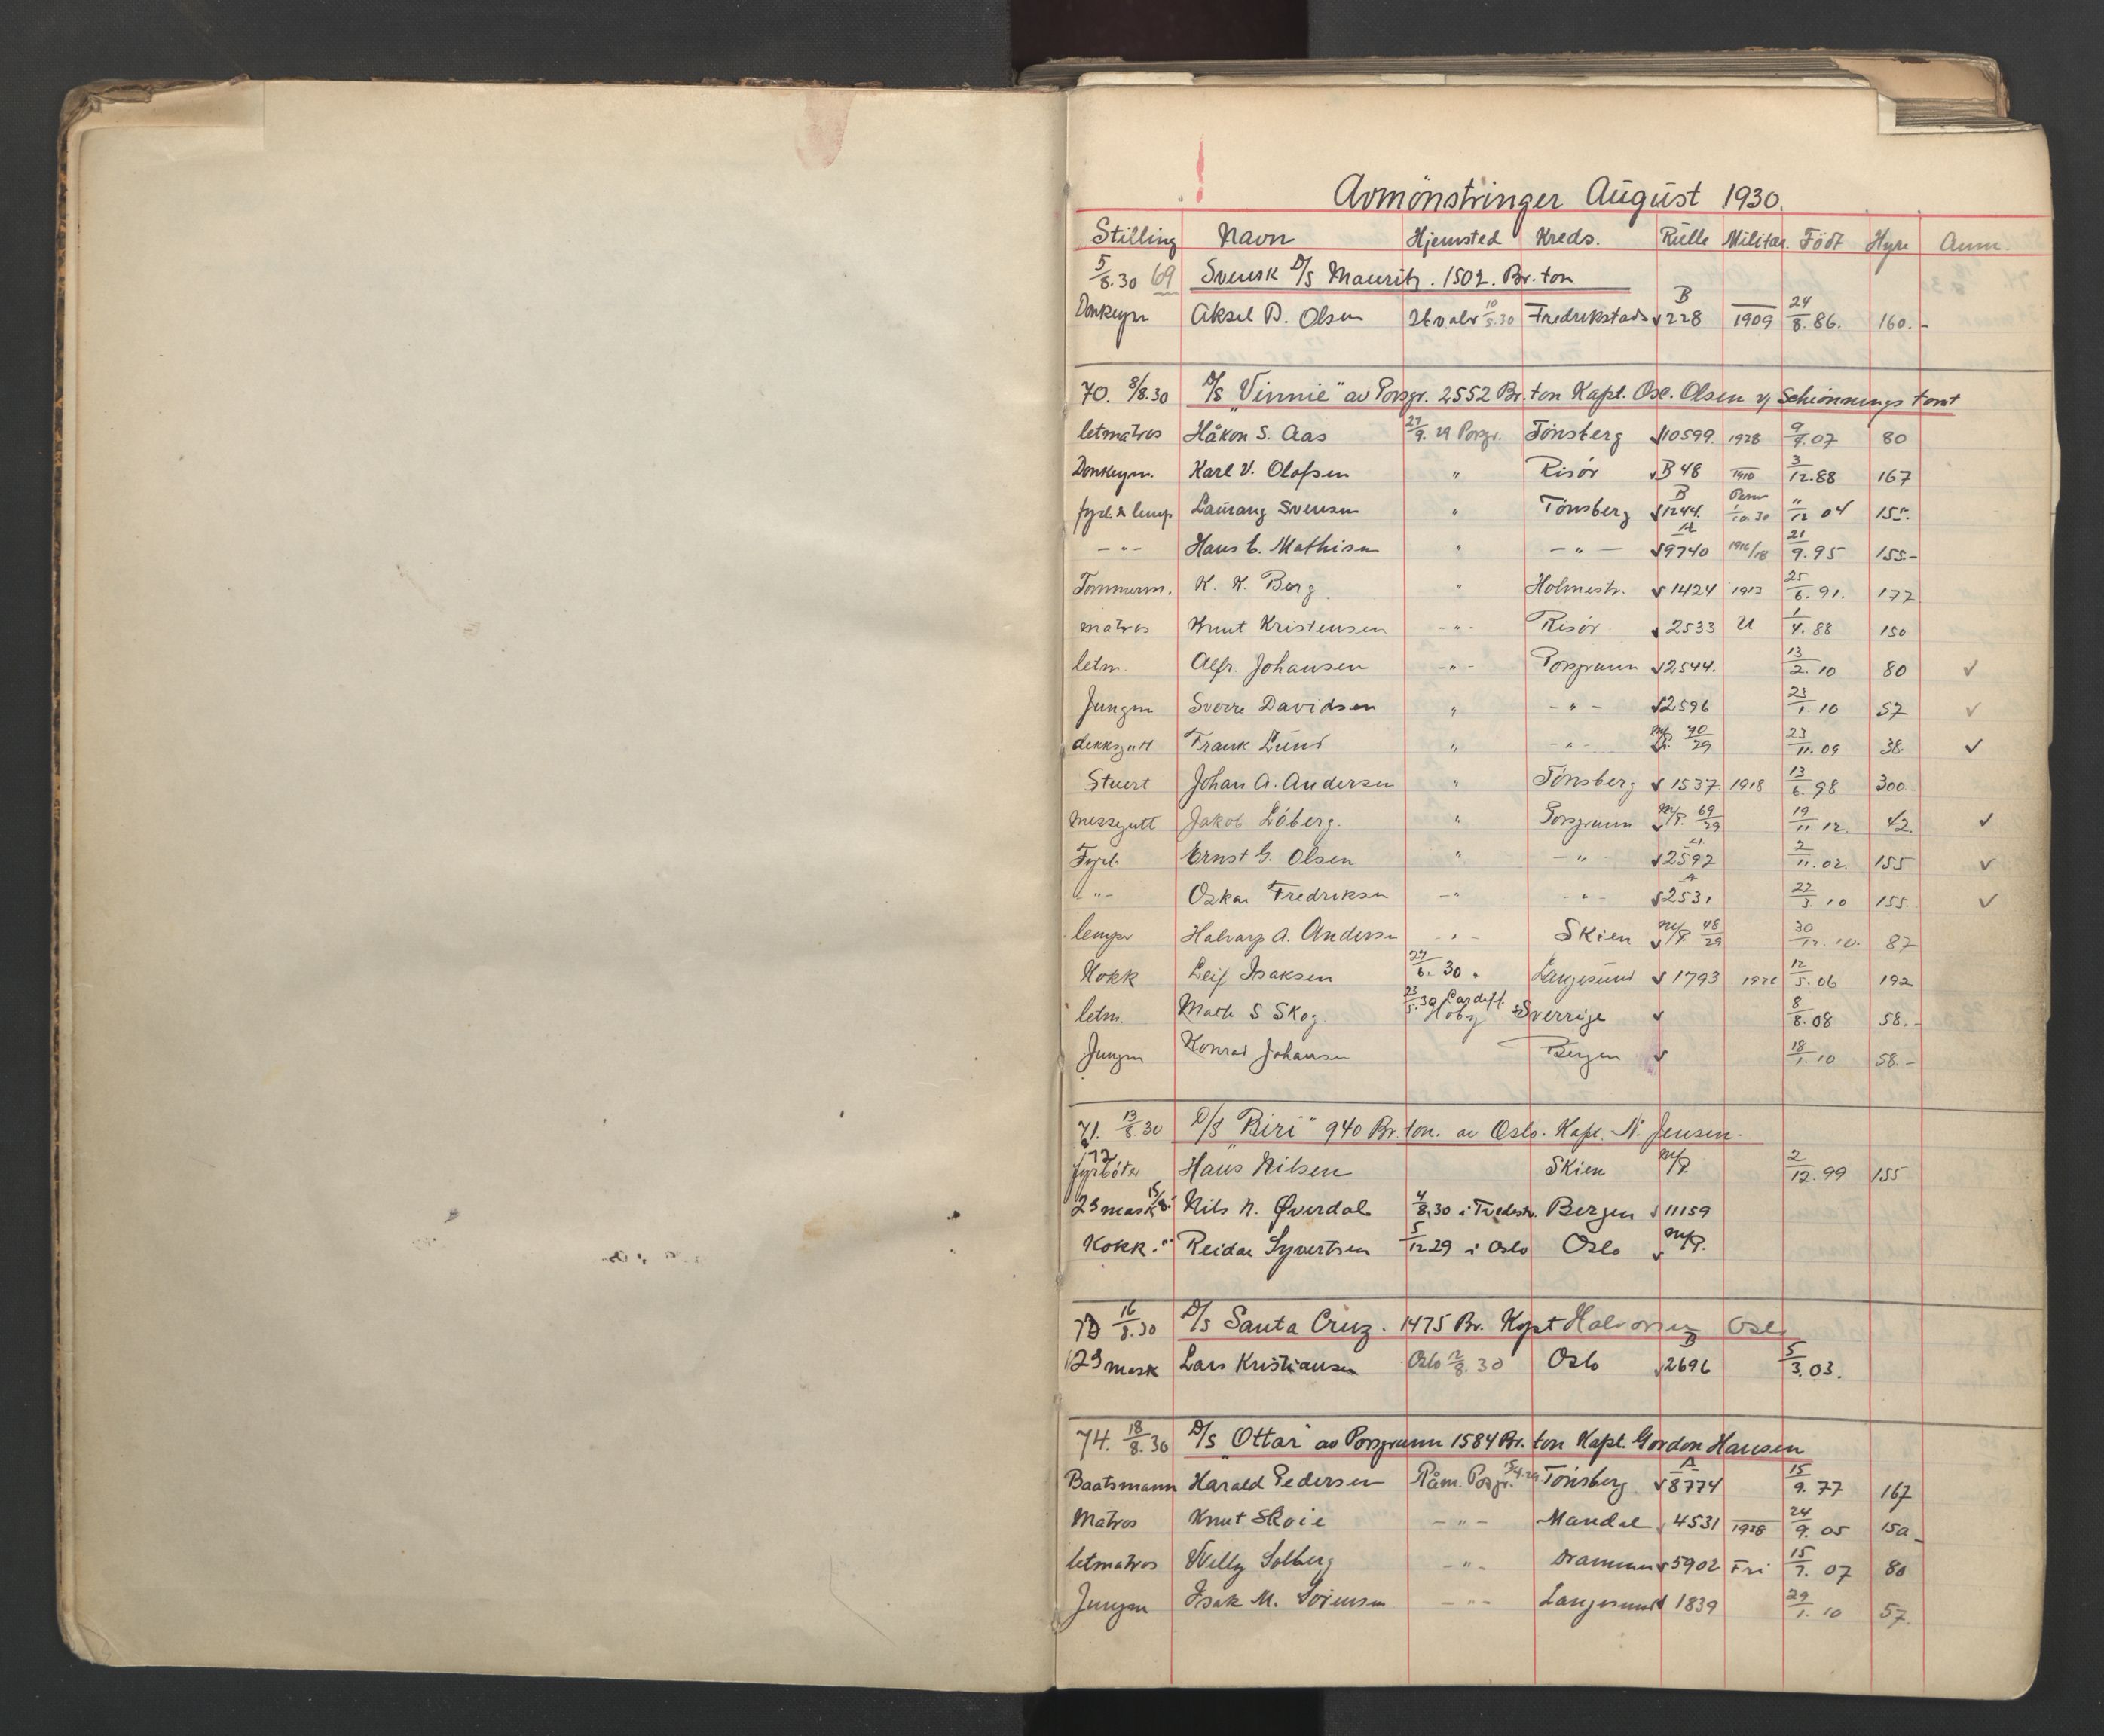 Avmönstringer August 1930.
Stilling Navn Hjemsted Kreds. Rülle Militær. Födt Hyre Anm.
5/8.30 69 Svensk D/s Mauritz. 1502. Br. ton
Donkeym Aksel B. Olsen 10/5.30 Fredrikstad B 228 1909 24/8.86. 160.-
70. 8/8.30 D/s "Vinnie" av Porsgr. 2552 Br. ton Kapt. Osc. Olsen v/ Schiönnings tomt
letmatros Håkon S. Aas 27/9.29 Porsgr. Tönsberg 10599. 1928 9/9.07 80
Donkeym. Karl V. Olafsen " Risör B 48 1910 3/12.88 167
fyrb. & lemp Laurang Svensen " Tönsberg B 1244. 1/10.30 "/12 04 155.
- " - Hans E. Mathisen " - " - A 9740 1916/18 21/9.95 155-
Tommerm. K. K. Borg. " Holmestr. 1424 1913 25/6.91. 177
matros Knut Kristensen - " - Risör. 2533 U 1/4.88 150
letm. Alfr. Johansen - " - Porsgrunn 2544. 13/2.10 80 ✓
Jungm Sverre Davidsen " - " - 2596 23/1.10 57 ✓
dekksgutt Frank Lund " - " - m/P. 70/29 23/11.09 38. ✓
Stuert Johan A. Andersen " Tönsberg 1537 1918 13/6.98 300.
messgutt Jakob Löberg. " Porsgrunn m/P. 69/29 19/11.12. 42. ✓
Fyrb. Ernst G. Olsen " - " - A 2592 2/11.02. 155 ✓
- " - Oskar Fredriksen - " - " - A 2531 22/3.10 155. ✓
lemper Halvary A. Andersen - " - Skien m/P. 48/29 30/12.10. 87
Kokk Leif Isaksen 27/6.30 " Langesund 1793 1926 12/5.06 192
letm. Math S Skog 23/5.30 Cardiff. Sverrige 8/8.08 58.-
Jungm Konrad Johansen Bergen 18/1.10 58.-
71. 13/8.30 D/S "Biri" 940 Br. ton. av Oslo. Kapt. N. Jensen.
72 fyrböter Hans Nilsen Skien m/P. 2/12.99 155
2s mask 15/8. Nils N. Øverdal 4/8.30 i Tvedestr. Bergen 11159
Kokk. " Reidar Syvertsen 5/12 29 i Oslo Oslo m/P.
73 16/8.30 D/s Santa Cruz. 1475 Br. Kapt Halvorsen Oslo
2s mask Lars Kristiansen Oslo 12/8.30 Oslo B 2696 5/3.03.
74. 18/8.30 D/s "Ottar" av Porsgrunn 1584 Br. ton Kapt. Gordon Hansen
Baatsmann Harald Pedersen Påm. Porsgr. 15/4.29. Tönsberg A 8774 15/9.77 167
Matros Knut Skoie - " - Mandal 4531 1928 24/9.05 150.-
letmatros Willy Solberg - " - Drammen 5902 Fri 15/7.07 80
Jungm Isak M. Sörensen - " - Langesund 1839 29/1.10 57.